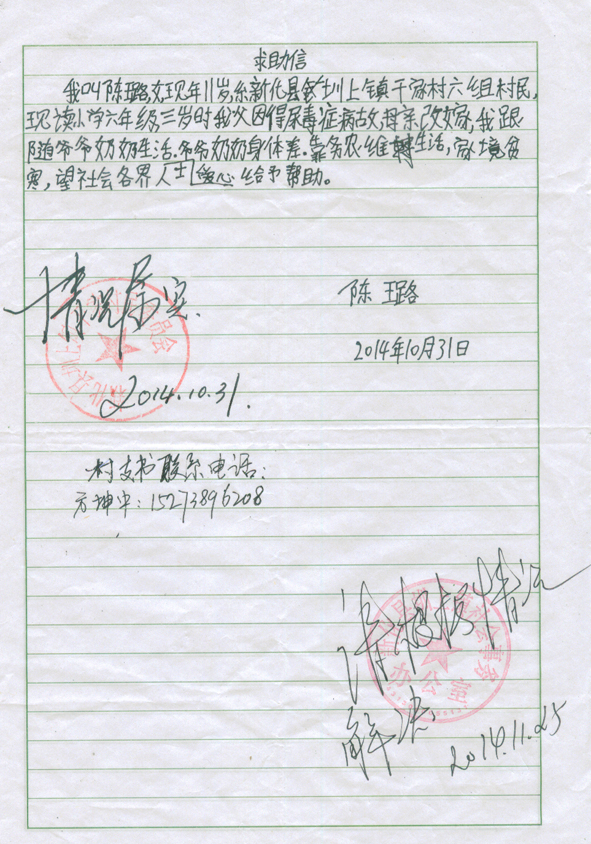 求助信
我叫陈璐,女,现年11岁,系新化县圳上镇干家村六组村民,
现读小学六年级,三岁时我父因得尿毒症病故,母亲改嫁,我跟
随爷爷奶奶生活.爷爷奶奶身体差.靠务农维转生活,家境贫
寒,望社会各界人士爱心给予帮助。
情况属实.
陈璐
2014年10月31日
2014.10.31.
村支书联系电话:
方坤中:15273896208
请根据情况
办公室
解决.
2014.11.25